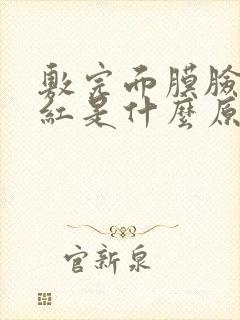 敷完面膜臉
紅是什麼原
官新泉